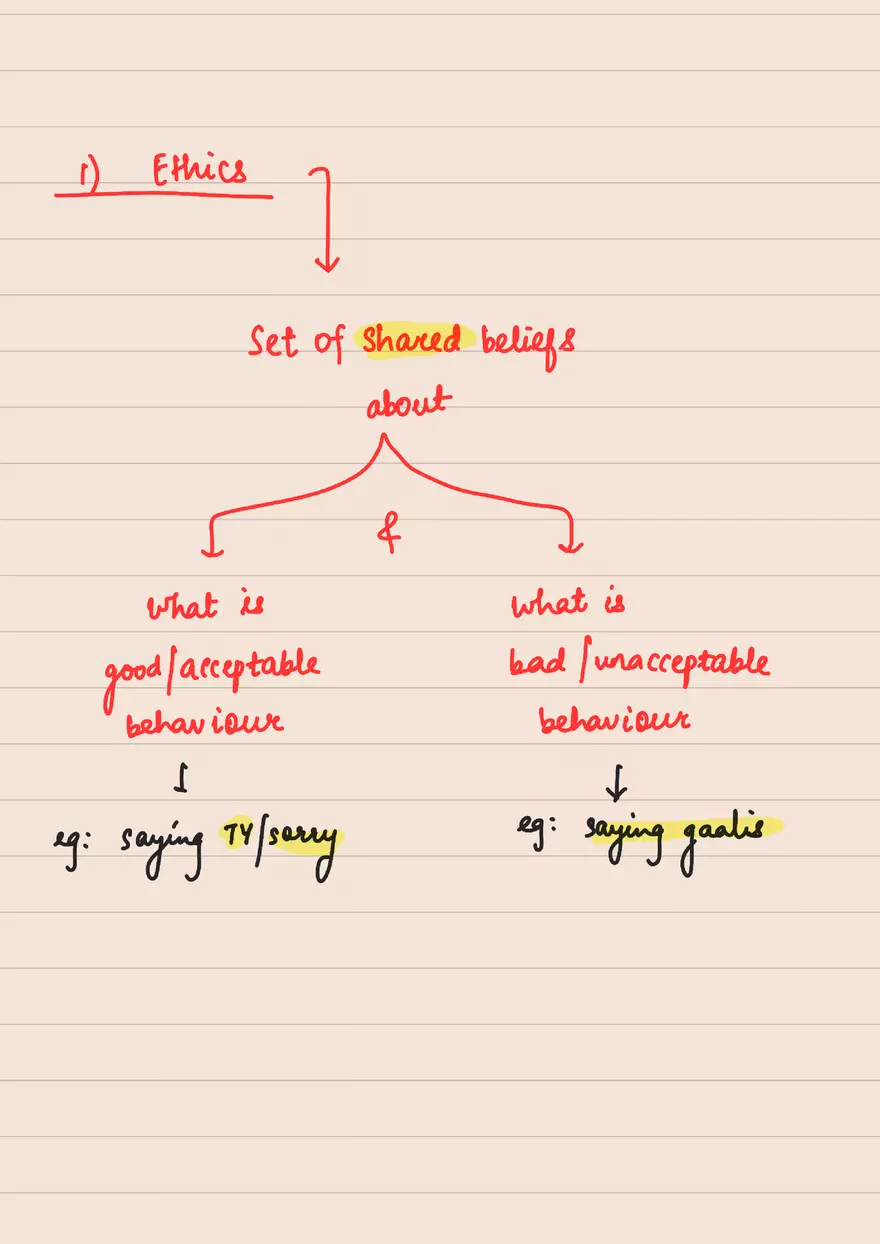 1) Ethics
Set of shared beliefs
about
&
what is
good/acceptable
behaviour
what is
bad/unacceptable
behaviour
eg: saying TY/sorry
eg: saying gaalis